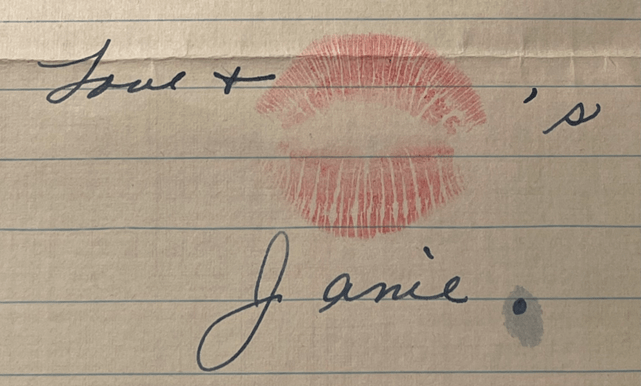 Love + 's
Janie.